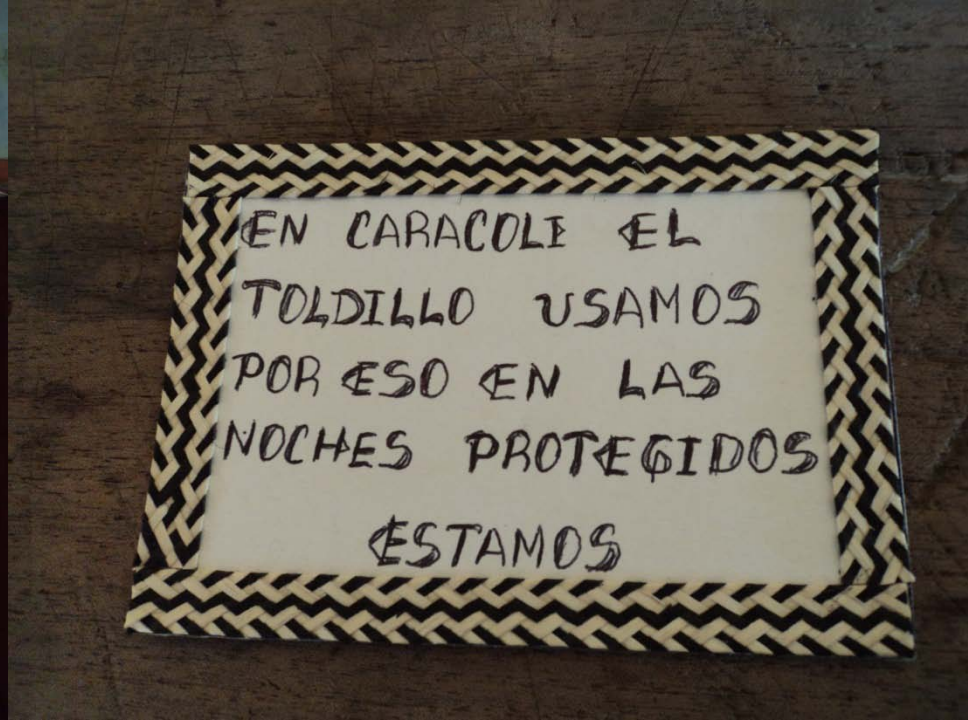 EN CARACOLI EL
TOLDILLO USAMOS
POR ESO EN LAS
NOCHES PROTEGIDOS
ESTAMOS